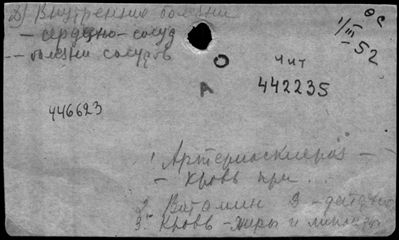 Д) Внутренние болезни
- сердечно-сосуд
-- болезни сосудов
ОС
1/III-52
О
А
Чит
442235
446623
1 Артериосклероз -
- кровь при
2 Витамин - действие
3 Кровь - жиры и липоиды